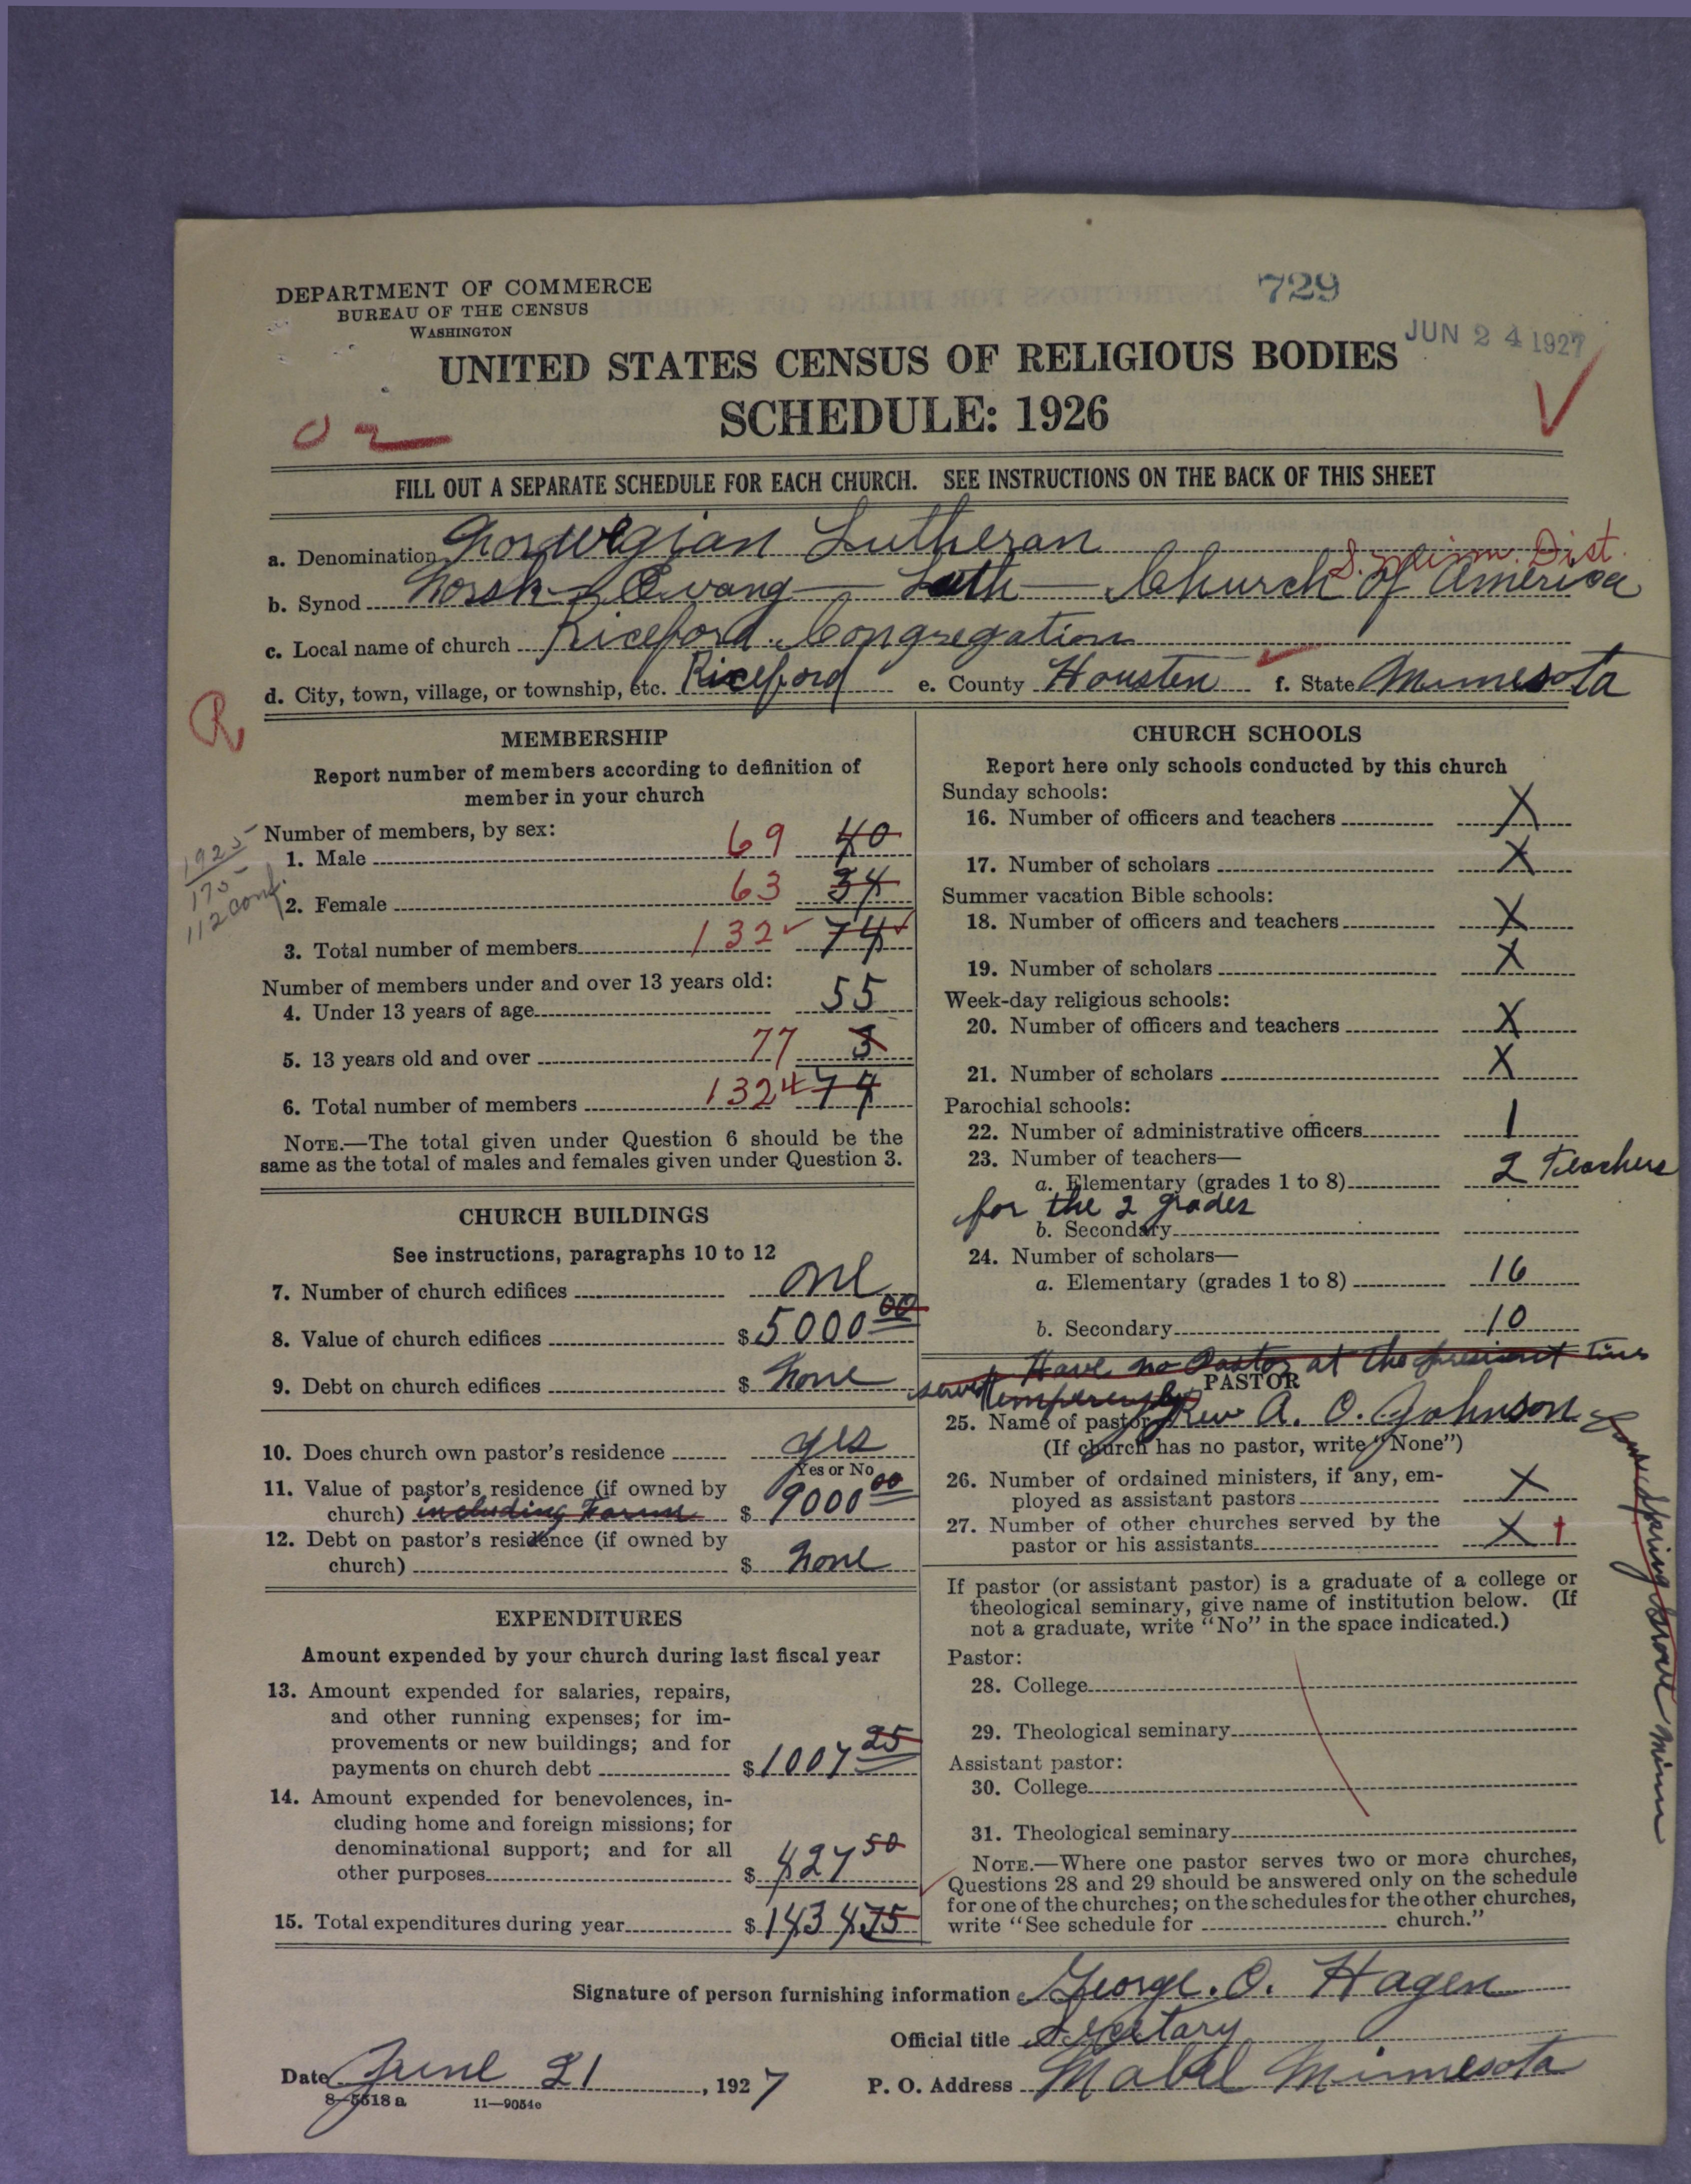 DEPARTMENT OF COMMERCE
BUREAU OF THE CENSUS
WASHINGTON
729
JUN 24 1927
UNITED STATES CENSUS OF RELIGIOUS BODIES
SCHEDULE: 1926
FILL OUT A SEPARATE SCHEDULE FOR EACH CHURCH. SEE INSTRUCTIONS ON THE BACK OF THIS SHEET
a. Denomination Norwegian Lutheran
S. Minn. Dist.
b. Synod Norsk - Evang - Luth - Church of America
c. Local name of church Riceford Congregation
d. City, town, village, or township, etc. Riceford e. County Housten f. State Minnesota
R
MEMBERSHIP
Report number of members according to definition of
member in your church
1925
175
112 conf.
Number of members, by sex:
1. Male 69 40
2. Female 63 34
3. Total number of members 132 74
Number of members under and over 13 years old:
4. Under 13 years of age 55
5. 13 years old and over 77 3
6. Total number of members 132 74
NOTE.—The total given under Question 6 should be the
same as the total of males and females given under Question 3.
CHURCH BUILDINGS
See instructions, paragraphs 10 to 12
7. Number of church edifices one
8. Value of church edifices $5000 00
9. Debt on church edifices $ none
10. Does church own pastor's residence yes
Yes or No
11. Value of pastor's residence (if owned by
church) including Farm $ 9000 00
12. Debt on pastor's residence (if owned by
church) $ none
EXPENDITURES
Amount expended by your church during last fiscal year
13. Amount expended for salaries, repairs,
and other running expenses; for im-
provements or new buildings; and for
payments on church debt $1007 25
14. Amount expended for benevolences, in-
cluding home and foreign missions; for
denominational support; and for all
other purposes $ 427 50
15. Total expenditures during year $1434 75
CHURCH SCHOOLS
Report here only schools conducted by this church
Sunday schools:
16. Number of officers and teachers X
17. Number of scholars X
Summer vacation Bible schools:
18. Number of officers and teachers X
19. Number of scholars X
Week-day religious schools:
20. Number of officers and teachers X
21. Number of scholars X
Parochial schools:
22. Number of administrative officers 1
23. Number of teachers—
a. Elementary (grades 1 to 8) 2 Teachers
for the 2 grades
b. Secondary
24. Number of scholars—
a. Elementary (grades 1 to 8) 16
b. Secondary 10
Have no Pastor at the present time
PASTOR
25. Name of pastor Rev A. O. Johnson
(If church has no pastor, write "None")
Spring Grove Minn
26. Number of ordained ministers, if any, em-
ployed as assistant pastors X
27. Number of other churches served by the
pastor or his assistants X
If pastor (or assistant pastor) is a graduate of a college or
theological seminary, give name of institution below. (If
not a graduate, write "No" in the space indicated.)
Pastor:
28. College
29. Theological seminary
Assistant pastor:
30. College
31. Theological seminary
NOTE.—Where one pastor serves two or more churches,
Questions 28 and 29 should be answered only on the schedule
for one of the churches; on the schedules for the other churches,
write "See schedule for church."
Signature of person furnishing information George. O. Hagen
Official title Secetary
Date June 21, 1927 P. O. Address Mabel Minnesota
8—5518 a 11—9054c